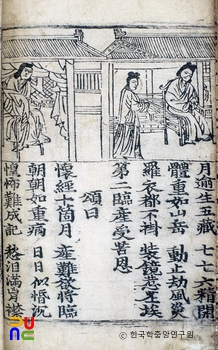 月逾生五臟 七七六精開
體重如山岳 動止劫風災
羅衣都不掛 裝鏡惹塵埃
第二臨産受苦恩
頌曰
懷經十箇月 産難欲將臨
朝朝如重病 日日似惛沉
惶怖難成記 愁泪滿胷襟
© 한국학중앙연구원